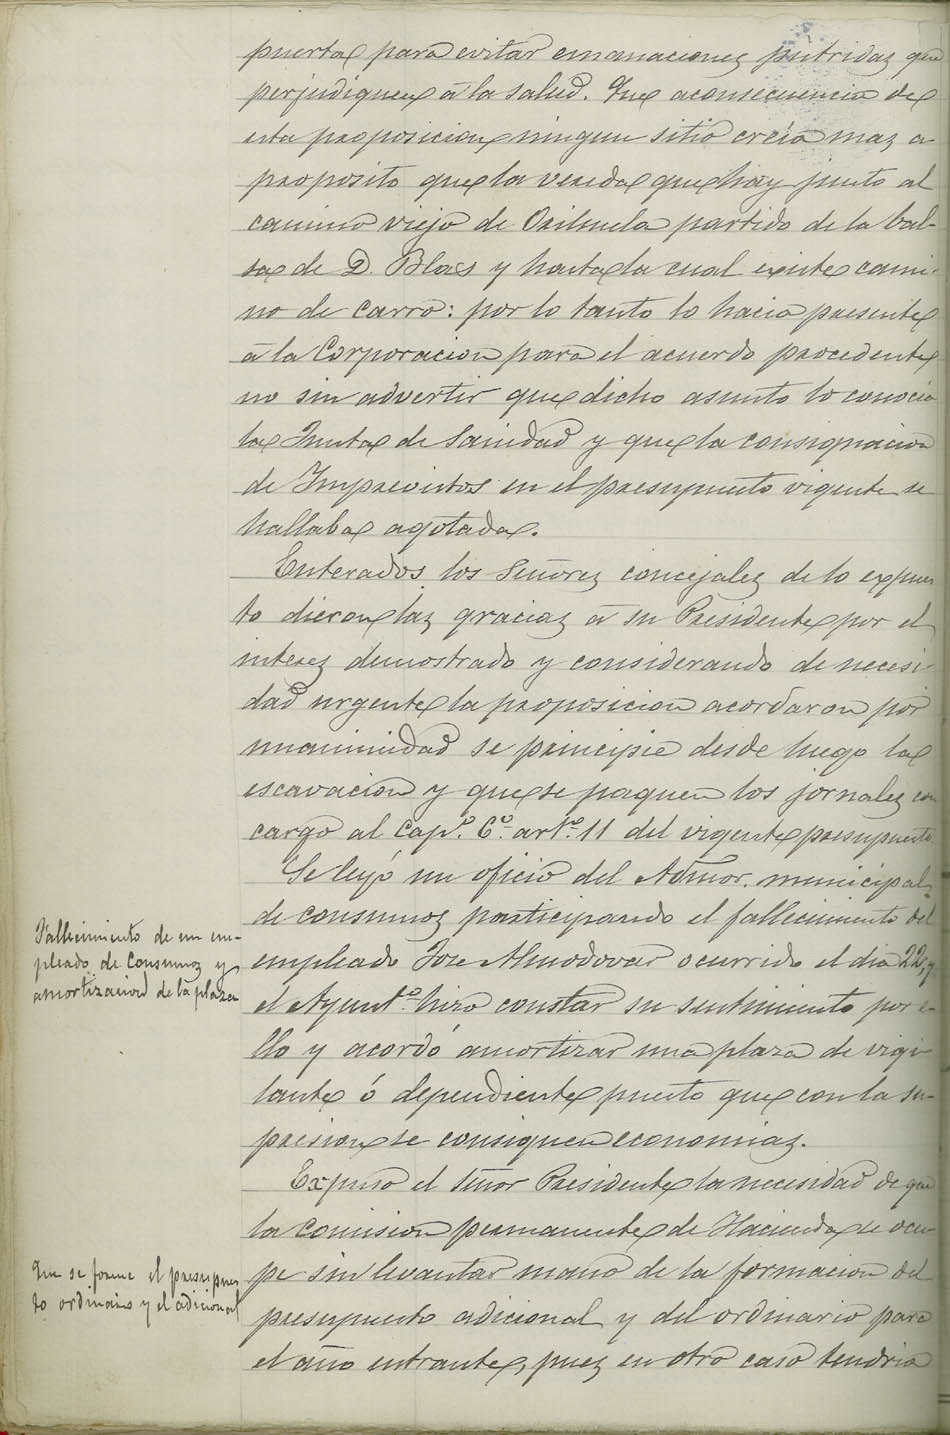 puerta para evitar emanaciones pútridas que
perjudiquen á la salud. Que aconsecuencia de
esta proposicion ningun sitio creía mas a
proposito que la vereda que hay junto al
camino viejo de Orihuela partido de la bal-
sa de D. Blas y hasta la cual existe cami-
no de carro: por lo tanto lo hacia presente
á la Corporacion para el acuerdo procedente
no sin advertir que dicho asunto lo conocia
la Junta de Sanidad y que la consignacion
de Imprevistos en el presupuesto vigente se
hallaba agotada.
Enterados los Señores concejales de lo expues
to dieron las gracias á su Presidente por el
interes demostrado y considerando de necesi-
dad urgente la proposicion acordaron por
unanimidad se principie desde luego la
escavacion y que se paguen los jornales con
cargo al Capº. 6º. artº. 11 del vigente presupuesto
Se leyó un oficio del Admor. municipal
de consumos participando el fallecimiento del
empleado Jose Almodovar ocurrido el dia 22, y
el Ayuntº. hizo constar su sentimiento por e-
llo y acordó amortizar una plaza de vigi
lante ó dependiente puesto que con la su-
presion se consiguen economias.
Expuso el Señor Presidente la necesidad de que
la Comision permanente de Hacienda se ocu
pe sin levantar mano de la formacion del
presupuesto adicional y del ordinario para
el año entrante, pues en otro caso tendria
Fallecimiento de un em-
pleado de Consumos y
amortizacion de la plaza
Que se forme el presupues
to ordinario y el adicional